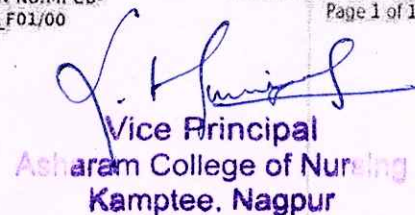 _F01/00
Page 1 of 1
Vice Principal
Asharam College of Nursing
Kamptee, Nagpur